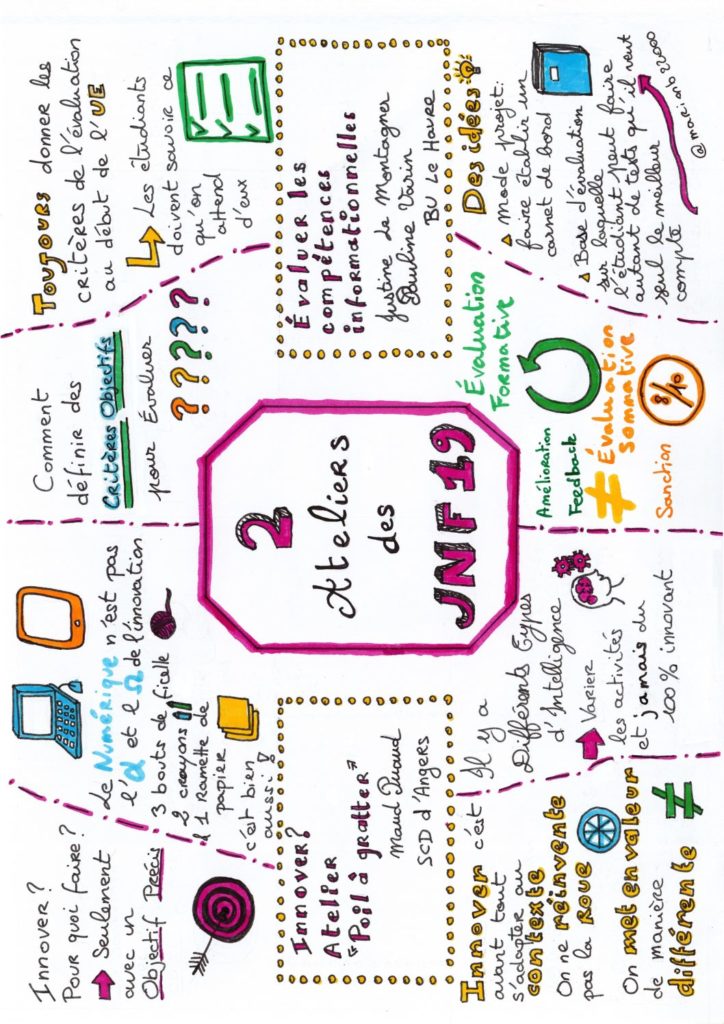 Innover?
Pour quoi faire?
Seulement
avec un
Objectif Précis
Le Numérique n'est pas
l'α et l'Ω de l'innovation
3 bouts de ficelle
2 crayons
1 Ramette de
papier
c'est bien
aussi!
Comment
définir des
Critères Objectifs
pour Évaluer
? ? ? ? ?
Toujours donner les
critères de l'évaluation
au début de l'UE
Les étudiants
doivent savoir ce
qu'on
attend
d'eux
Innover?
Atelier
"Poil à gratter"
Maud Puaud
SCD d'Angers
2
Ateliers
des
JNF19
Évaluer les
compétences
informationnelles
Justine de Montagner
Pauline Varin
BU Le Havre
Innover c'est
avant tout
s'adapter au
contexte
On ne réinvente
pas la Roue
On met en valeur
de manière
différente ≠
Il y a
Différents Types
d'Intelligence
Varier
les activités
et jamais du
100% innovant
Évaluation
Formative
Amélioration
Feedback
≠
Évaluation
sommative
Sanction
8/10
Des idées
Mode projet:
faire établir un
carnet de bord
Base d'évaluation
sur laquelle
l'étudiant peut faire
autant de tests qu'il veut
seul le meilleur
compte
@marionb22000